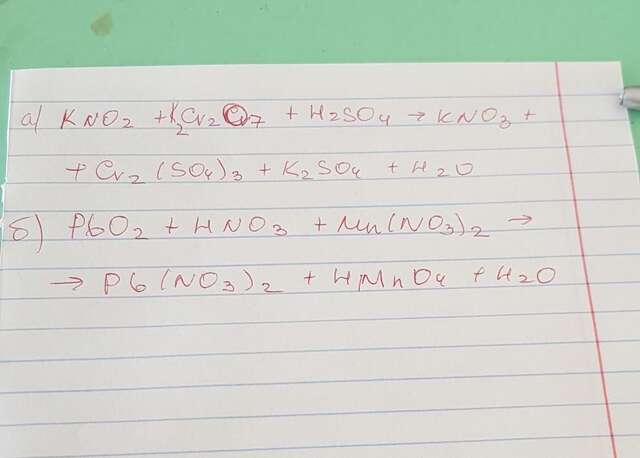 а) KNO2 + K2Cr2O7 + H2SO4 → KNO3 +
+ Cr2(SO4)3 + K2SO4 + H2O
б) PbO2 + HNO3 + Mn(NO3)2 →
→ Pb(NO3)2 + HMnO4 + H2O